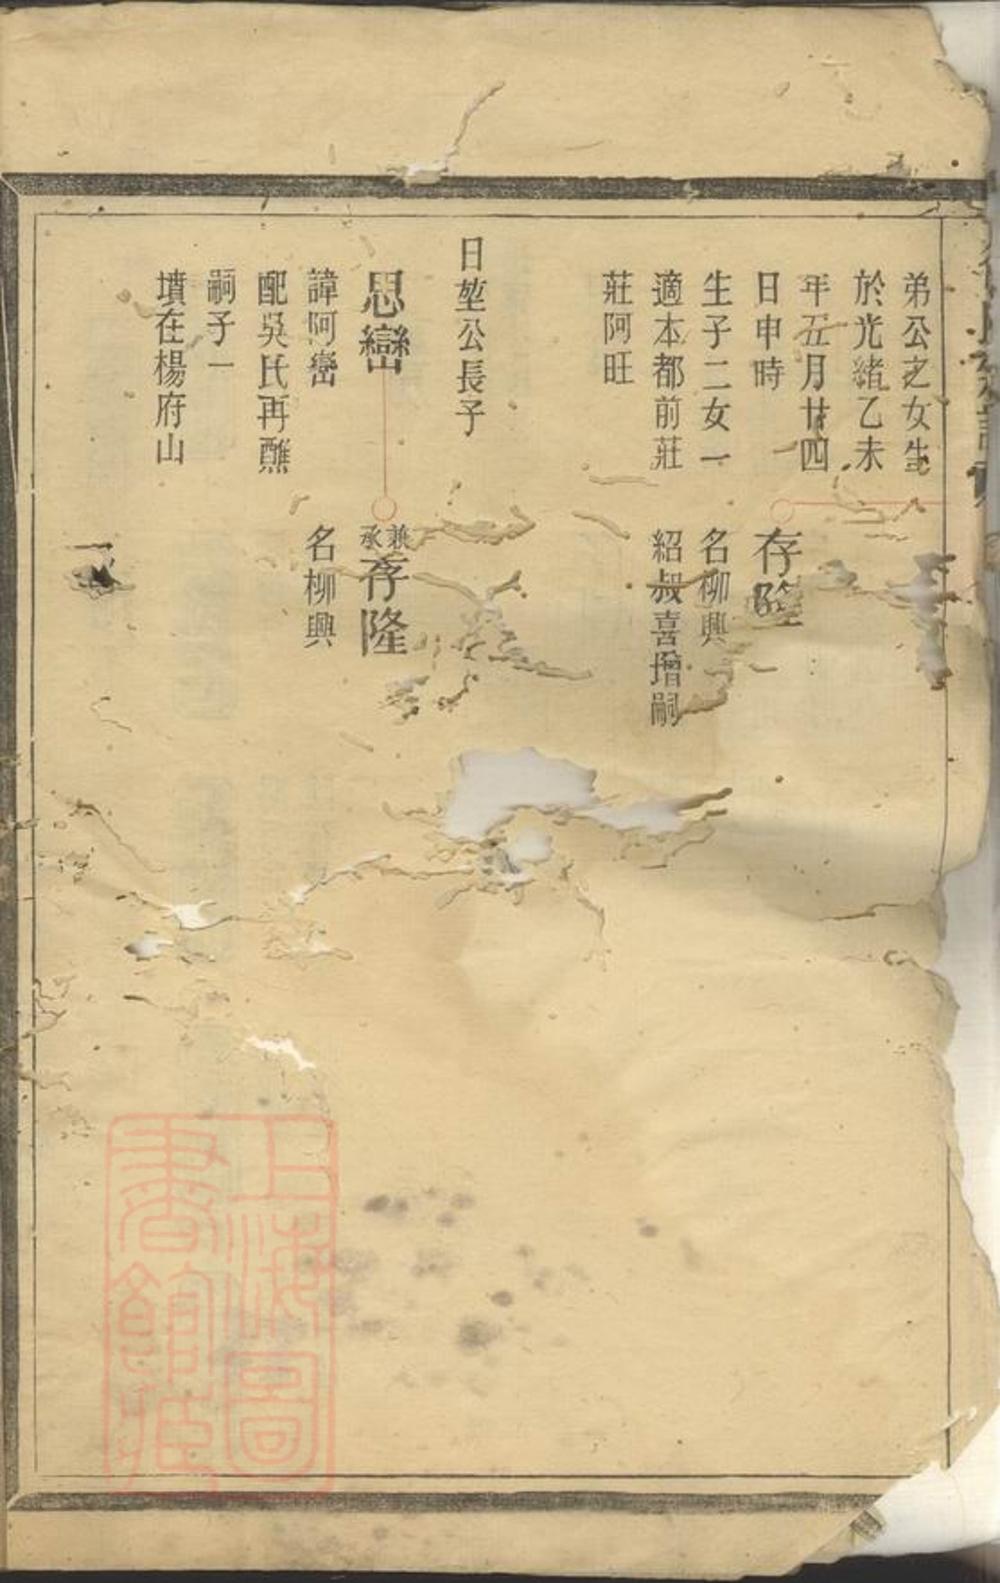 弟公之女生
於光緒乙未
年五月廿四
日申時
生子二女一
適本都前莊
莊阿旺
存隆
名柳興
紹叔喜增嗣
日堃公長子
思巒
諱阿巒
配吳氏再醮
嗣子一
墳在楊府山
兼承存隆
名柳興
上海圖
書館藏